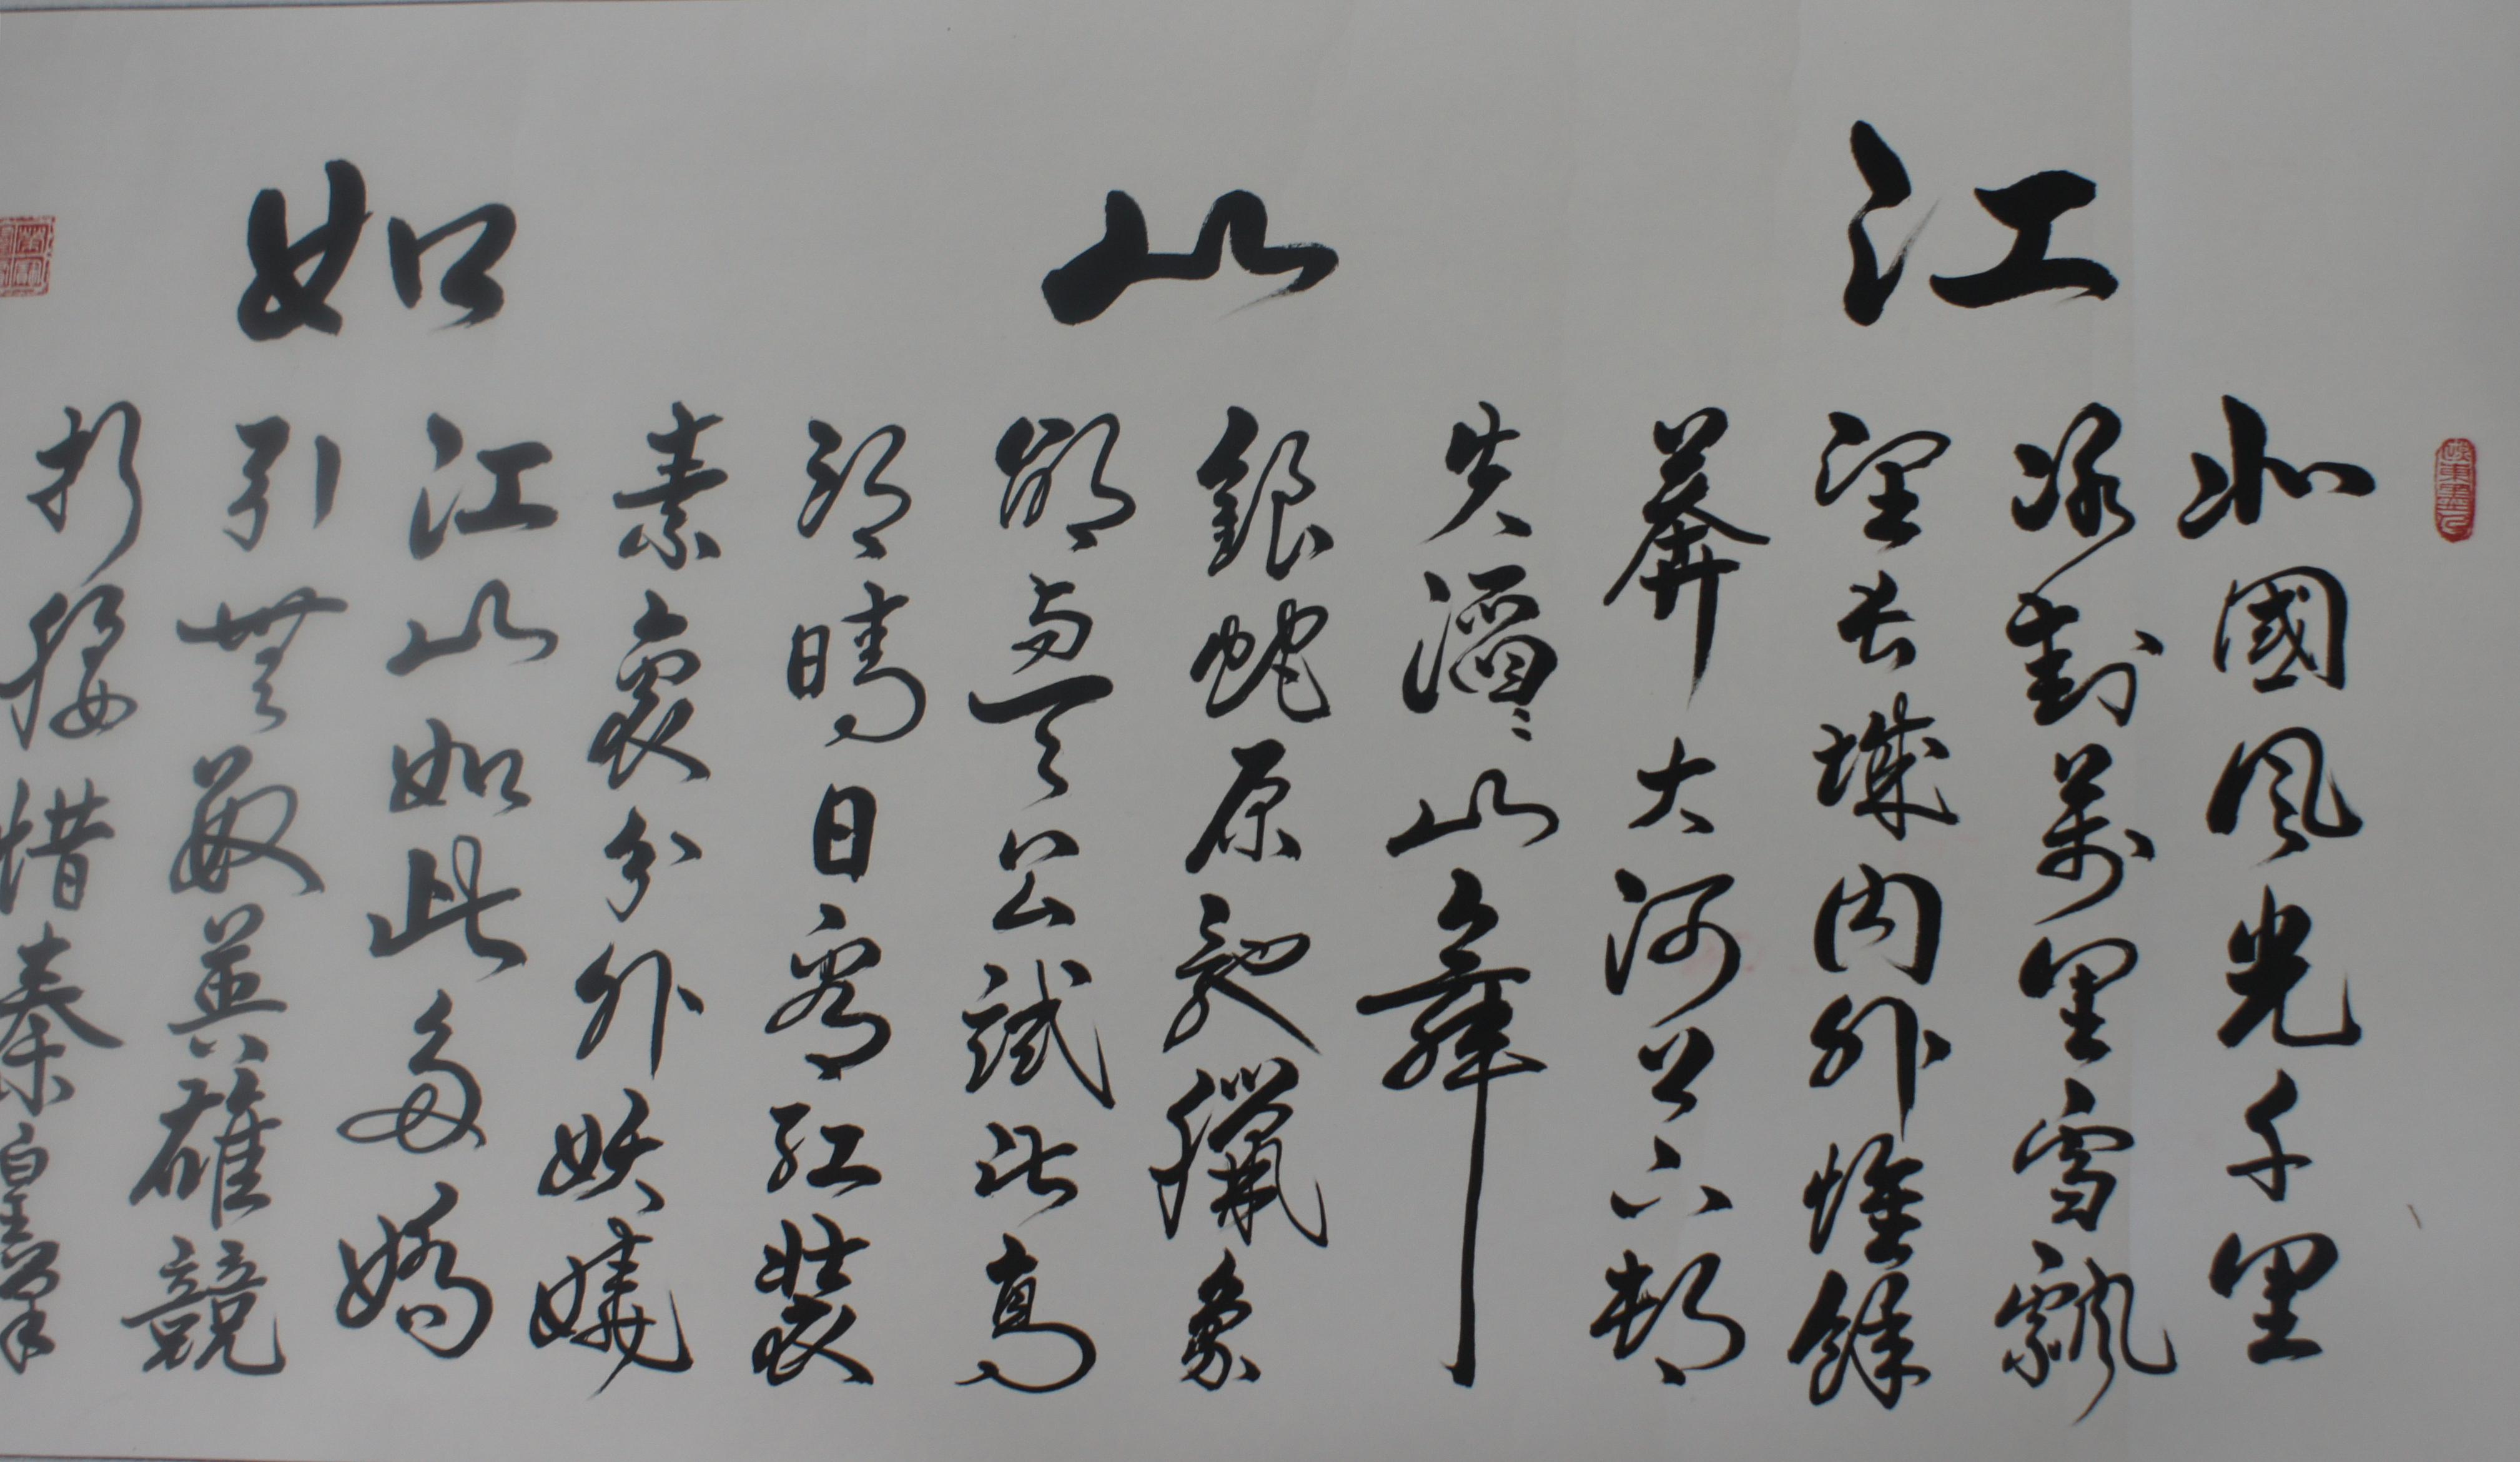 江山如
北國風光千里
冰封萬里雪飄
望長城內外惟餘
莽大河上下頓
失滔〻山舞
銀蛇原馳臘象
欲與天公試比高
須晴日看紅裝
素裹分外妖嬈
江山如此多嬌
引無數英雄競
折腰惜秦皇